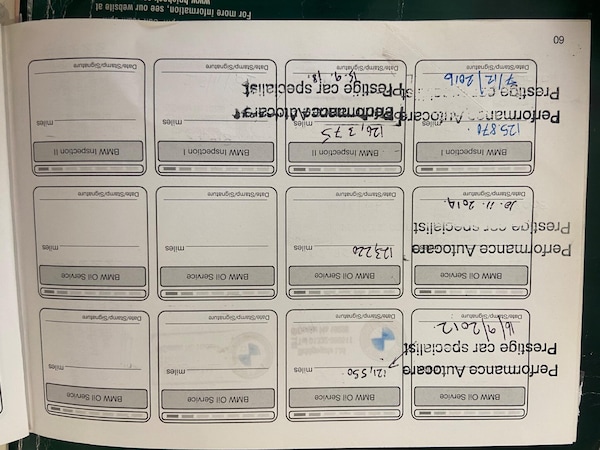 BMW Oil Service
BMW Oil Service
BMW Oil Service
BMW Oil Service
121,550
miles
miles
miles
Performance Autocare
Prestige car specialist
16/9/2012
Date/Stamp/Signature
Date/Stamp/Signature
Date/Stamp/Signature
Date/Stamp/Signature
BMW Oil Service
BMW Oil Service
BMW Oil Service
BMW Oil Service
123,220
miles
miles
miles
Performance Autocare
Prestige car specialist
10.11.2014
Date/Stamp/Signature
Date/Stamp/Signature
Date/Stamp/Signature
Date/Stamp/Signature
BMW Inspection I
BMW Inspection II
BMW Inspection I
BMW Inspection II
125,870
miles
126,375
miles
miles
miles
Performance Autocare
Performance Autocare
Prestige car specialist
Prestige car specialist
7/12/2016
18.9.18.
Date/Stamp/Signature
Date/Stamp/Signature
Date/Stamp/Signature
Date/Stamp/Signature
60
For more information, see our website at